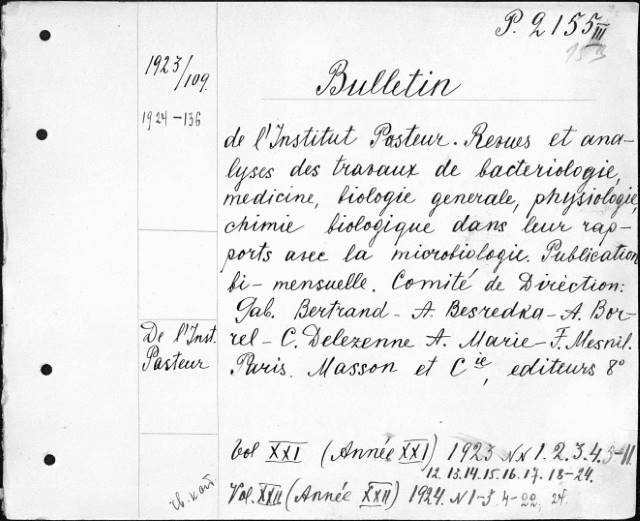 P. 2155 III
153
1923/109.
1924-136
Bulletin
de l'Institut Pasteur. Revues et ana-
lyses des travaux de bacteriologie,
medicine, biologie generale, physiologie,
chimie biologique dans leur rap-
ports avec la microbiologie. Publication
bi-mensuelle. Comité de Diréction:
Gab. Bertrand - A. Besredka - A. Bor-
rel - C. Delezenne A. Marie - F. Mesnil.
Paris. Masson et Cie, editeurs 8°
De l'Inst.
Pasteur
Vol XXI (Année XXI) 1923 NN 1.2.3.4.5-11.
12.13.14.15.16.17.18-24.
Vol. XXII (Année XXII) 1924. N 1-3, 4-22, 24.